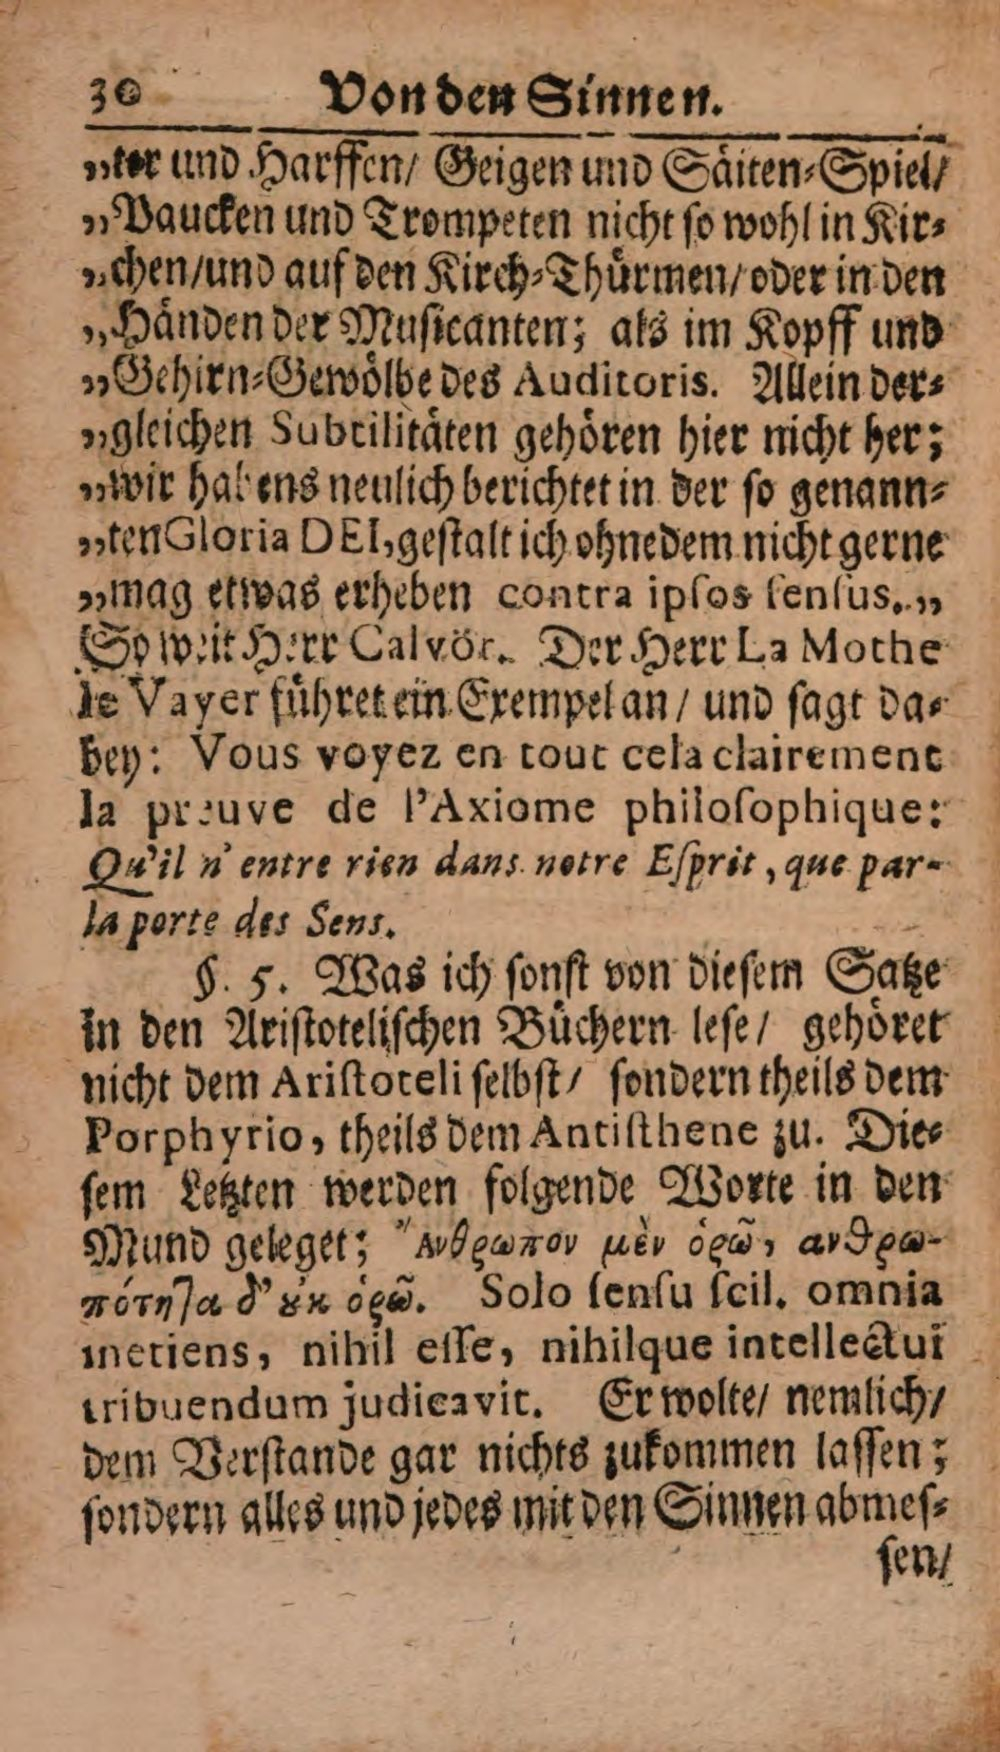 30 Von den Sinnen.
„ter und Harffen/ Geigen und Säiten-Spiel/
„Paucken und Trompeten nicht so wohl in Kir-
„chen/und auf den Kirch-Thürmen/oder in den
„Händen der Musicanten; als im Kopff und
„Gehirn-Gewölbe des Auditoris. Allein der-
„gleichen Subtilitäten gehören hier nicht her;
„wir habens neulich berichtet in der so genann-
„ten Gloria DEI, gestalt ich ohnedem nicht gerne
„mag etwas erheben contra ipſos ſenſus.„
So weit Herr Calvör. Der Herr La Mothe
le Vayer führet ein Exempel an/ und sagt da-
bey: Vous voyez en tout cela clairement
la preuve de l'Axiome philoſophique:
Qu'il n' entre rien dans notre Eſprit, que par-
la porte des Sens.
§. 5. Was ich sonst von diesem Satze
in den Aristotelischen Büchern lese/ gehöret
nicht dem Ariſtoteli selbst/ sondern theils dem
Porphyrio, theils dem Antiſthene zu. Die-
sem Letzten werden folgende Worte in den
Mund geleget; Ἄνθρωπον μὲν ὁρῶ, ανθρω-
πότητα δ' ȣ̓κ ὁρῶ. Solo ſenſu ſcil. omnia
metiens, nihil eſſe, nihilque intellectui
tribuendum judicavit. Er wolte/ nemlich/
dem Verstande gar nichts zukommen lassen;
sondern alles und jedes mit den Sinnen abmes-
sen/